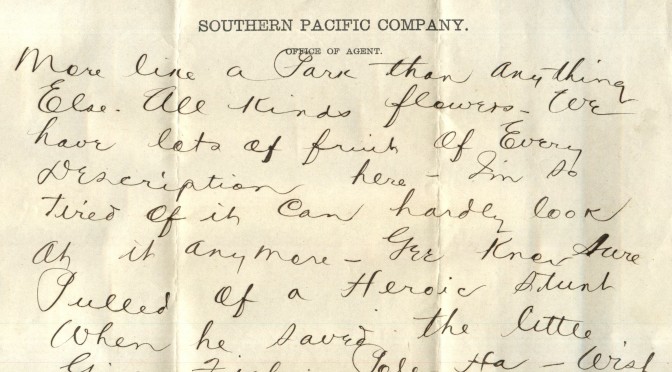 SOUTHERN PACIFIC COMPANY.
OFFICE OF AGENT.
More like a Park than anything
Else. All Kinds flowers - We
have lots of fruit of Every
Description here - I'm so
tired of it Can hardly look
at it anymore - Gee Knox sure
Pulled of a Heroic stunt
When he saved the little
Ha -